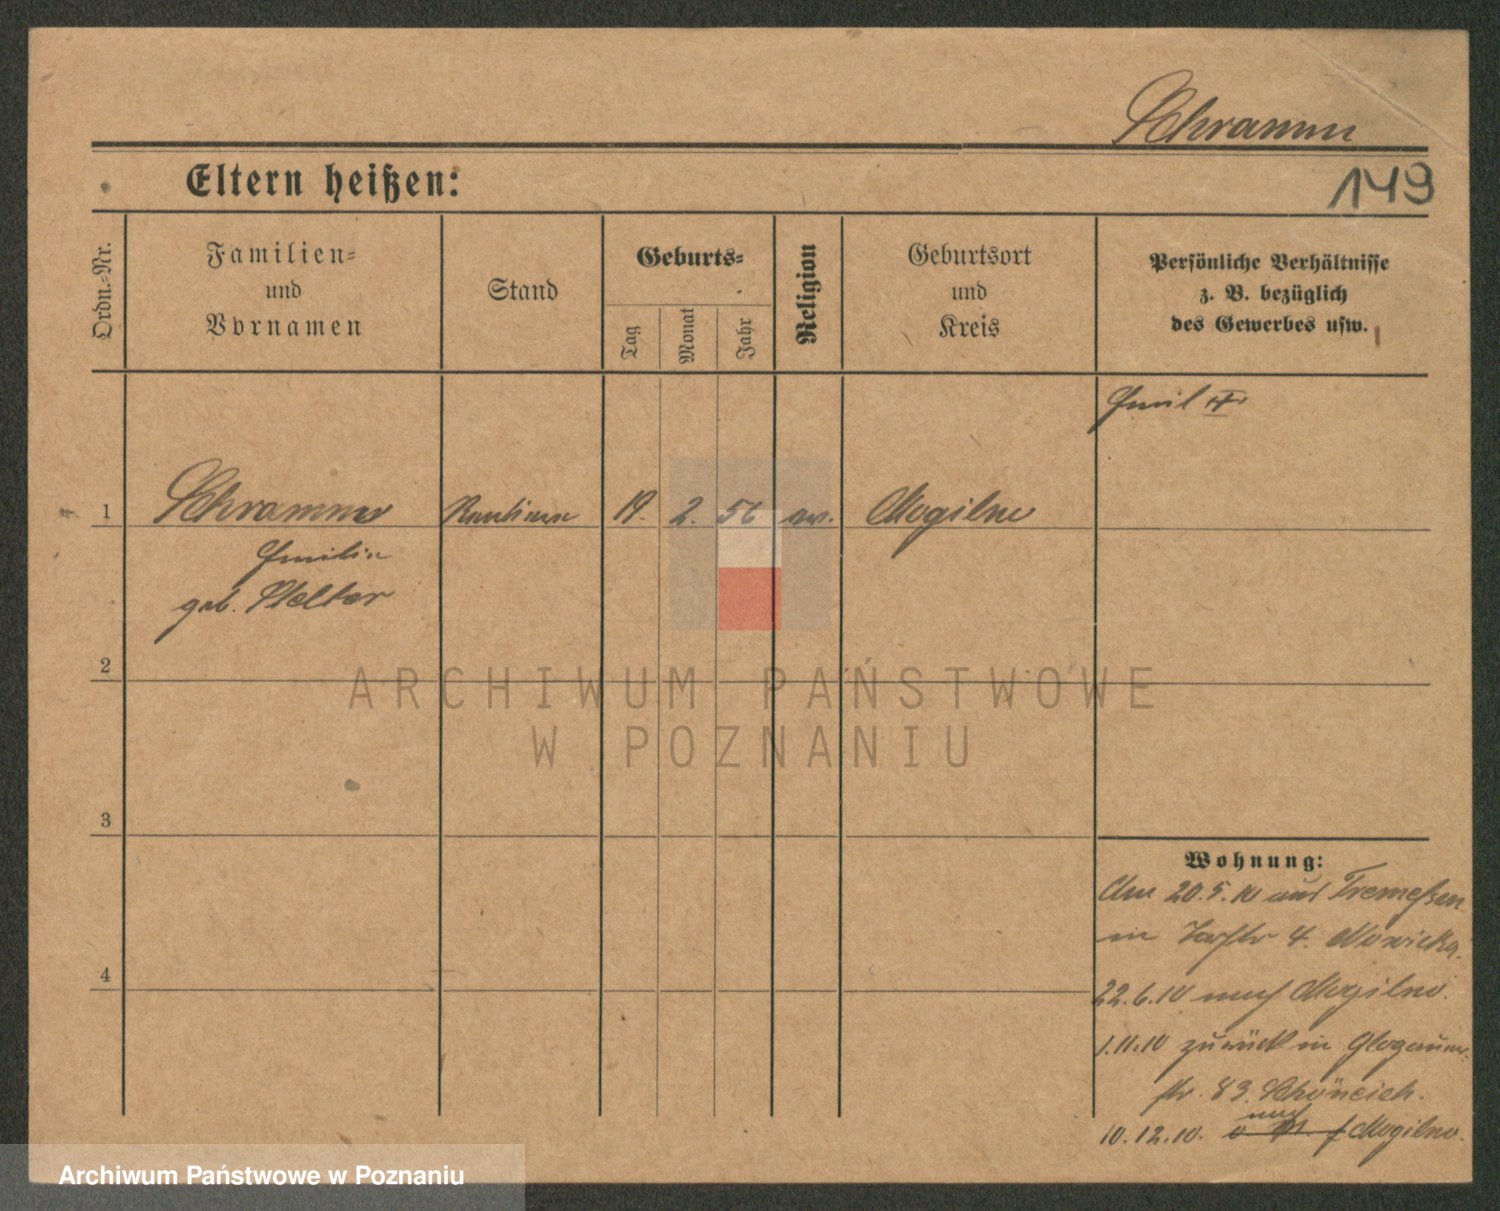 Schramm
149
Eltern heißen:
Ordn.-Nr.
Familien-
und
Vornamen
Stand
Geburts-
Tag
Monat
Jahr
Religion
Geburtsort
und
Kreis
Persönliche Verhältnisse
z. B. bezüglich
des Gewerbes usw.
Emil
1 Schramm 19. 2. 56 ev. Mogilno
Emilie
geb. Stelter
2
3
4
Wohnung:
Am 20.5.10 aus Tremessen
in 4. Nowicka.
22.6.10 nach Mogilno.
1.11.10 zurück in Glogauer-
str. 83. Schöneich.
nach
10.12.10. Mogilno.
ARCHIWUM PAŃSTWOWE
W POZNANIU
Archiwum Państwowe w Poznaniu